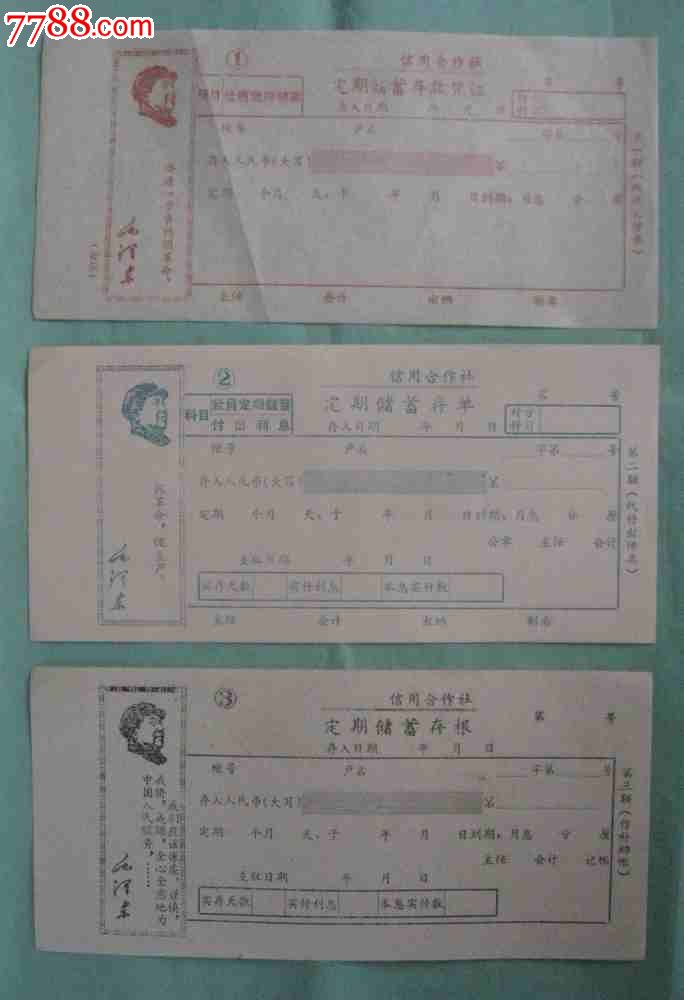 7788.com
①
信用合作社
第 号
收方科目社员定期储蓄
定期储蓄存款凭证
存入日期 年 月 日
帐号 户名 字第 号
存入人民币(大写) 第
定期 个月 天,于 年 月 日到期,月息 分 厘
要进一步节约闹革命。
毛泽东
主任 会计 出纳 制单
②
信用合作社
第 号
科目
社员定期储蓄
付出利息
定期储蓄存单
存入日期 年 月 日
付方
帐号 户名 字第 号
存入人民币(大写) 第
定期 个月 天,于 年 月 日到期,月息 分 厘
公章 主任 会计
支取日期 年 月 日
实存天数 实付利息 本息实付数
主任 会计 出纳 制单
抓革命,促生产。
毛泽东
第二联(代付出传票)
③
信用合作社
定期储蓄存根
第 号
存入日期 年 月 日
帐号 户名 字第 号
存入人民币(大写) 第
定期 个月 天,于 年 月 日到期,月息 分 厘
主任 会计 记帐
支取日期 年 月 日
实存天数 实付利息 本息实付数
我们应该谦虚,谨慎,
戒骄,戒躁,全心全意地为
中国人民服务,……
毛泽东